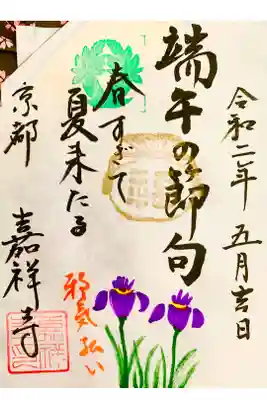 令和二年 五月吉日
端午の節句
春すぎて
夏来たる
邪気払い
京都 嘉祥寺